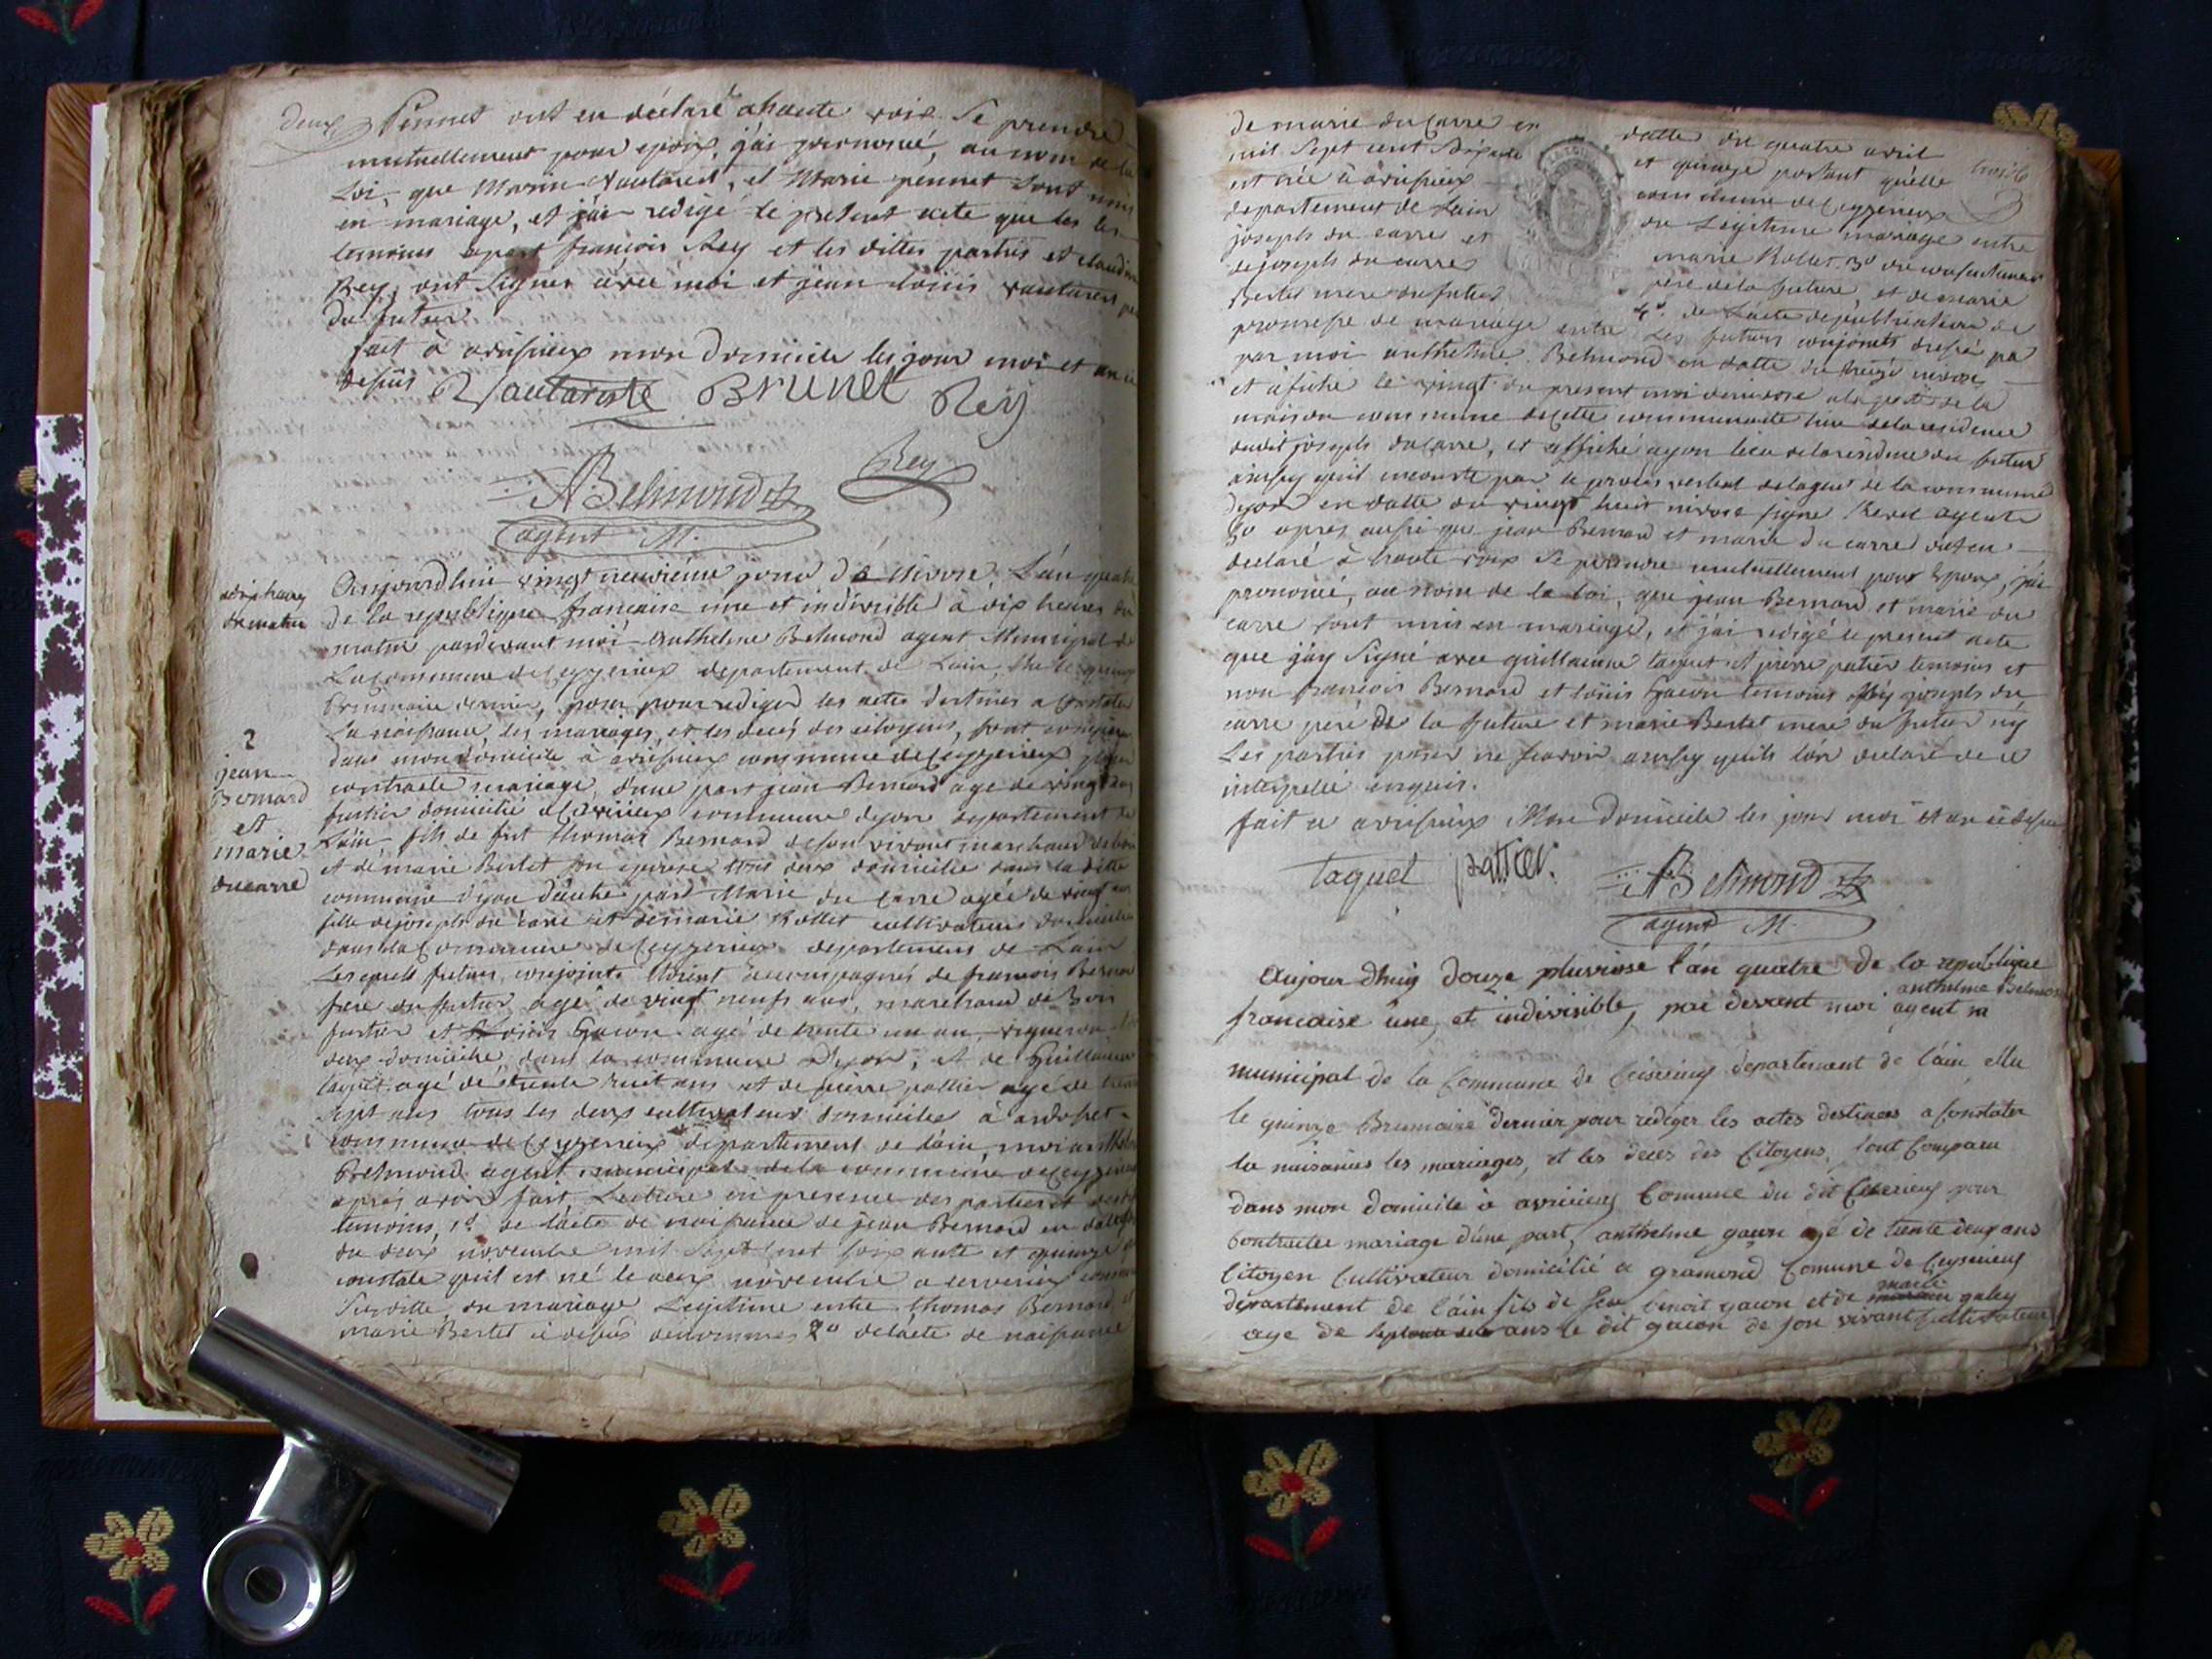 deux
Pennet ont en déclaré a haute voix Se prendre
mutuellement pour epoix, j'ai prononcé, au nom de la
Loi, que Marin Vautaret, et Marie pennet Sont unis
en mariage, et j'ai redigé le present acte que les
temoins apart françois Rey et les dittes parties et claudine
Rey, ont Signer avec moi et jean louis vautaret
du futur
fait à avrisieux mon Domicile les jour moi et an
depuis
Brunet Rey
Rey
ABelmond
agent M.
a dix heures
du matin
Aujourdhui vingt neuvieme jour de Nivose, L'an quatre
de la republique francaise une et indivisible à dix heures du
matin pardevant moi Anthelme Belmond agent Municipal de
La Commune de Ceyzerieux departement de Lain, élu le quinze
brumaire dernier, pour rediger les actes destinés a Constater
La naissance, les mariages, et les decés des citoyens, sont comparu
dans mon domicile à avrisieux commune de Ceyzerieux pour
contracte mariage, d'une part jean Bernard age de vingt
2
jean
Bernard
et
marie
ducarre
fustier domicilié a Cerverieux commune dyon departement de
Lain fils de fut thomas Bernard de son vivant marchand de bois
et de marie Bertet son epouse tous deux domicilié dans la ditte
commune d'yon d'autre part Marie du Carre agée de vingt ans
fille de joseph du Carre et de marie Rollet cultivateurs domiciliés
dans la Commune de Ceyzerieux departement de Lain
Lesquels futurs conjoints étoient accompagnés de francois Bernard
frere du futur agé de vingt neufs ans, marchand de bois
fustier et Loüis Gacon agé de trente un an, vigneron
deux domicilié dans la commune Dyon, et de Guillaume
taquet agé de trente huit ans et de pierre pattier age de trente
sept ans tous les deux cultivateurs domiciliés à ardosset
commune de Ceyzerieux departement de lain, moi anthelme
Belmond agent municipal de la commune de Ceyzerieux
apres avoir fait Lecture en presence des parties et des
temoins, 1º de l'acte de naissance de jean Bernard en datte
du deux novembre mil Sept Cent soixante et quinze
constate qu'il est né le deux novembre a cerverieux
Susditte du mariage Legitime entre thomas Bernard et
marie Bertet ci dessus denommés 2º de l'acte de naissance
de marie du Carre en datte du quatre avril
mil Sept cent et quinze portant qu'elle
est née à avrisieux commune de Ceyzerieux
departement de Lain du Legitime mariage entre
joseph du carre et marie Rollet 3º du consentement
de joseph du carre pere de la future, et de marie
Bertet mere du futur 4º de l'acte de publication de
promesse de mariage entre Les futurs conjoints dressé pa
par moi anthelme Belmond en datte du nivose
et afiché le vingt du present mois de nivose a la porte de la
maison commune de cette communauté lieu de la residence
dudit joseph ducarre, et affiché ayon lieu de la residence du futur
ainsy quil inconste par le procès verbal de lagent de la commune
dyon en datte du vingt huit nivose signe Revel agent
5º apres aussi que jean Bernard et marie du carre ont en
declaré à haute voix Se prendre mutuellement pour Epoux, j'ai
prononcé, au nom de la Loi, que jean Bernard et marie du
carre sont unis en mariage, et j'ai redigé le present acte
que j'ay Signé avec guillaume taquet et pierre patier temoins et
non francois Bernard et loüis Gacon temoins ny joseph du
carre peré de la future et marie Bertet mere du futur ny
Les parties pour ne scavoir ainsy quils lon declaré de ce
interpellé enquis.
fait a avrisieux Mon Domicile les jour moi et an ci dessus
taquet pattier.
ABelmond
agent M.
Aujour dhuy douze pluviose l'an quatre de la republique
francaise une, et indivisible, par devant moi anthelme Belmond agent
municipal de la Commune de departement de l'ain ellu
le quinze Brumaire dernier pour rediger les actes destinees a Constater
la naisances les mariages, et les deces des Citoyens, sont Comparu
dans mon domicile à avrisieux Comune du dit pour
Contracter mariage d'une part, anthelme gacon agé de trente deux ans
Citoyen Cultivateur domicilié a gramond Comune de Ceyserieux
departement de l'ain fils de feu benoit gacon et de marie galey
age de ans le dit gacon de son vivant Cultivateur